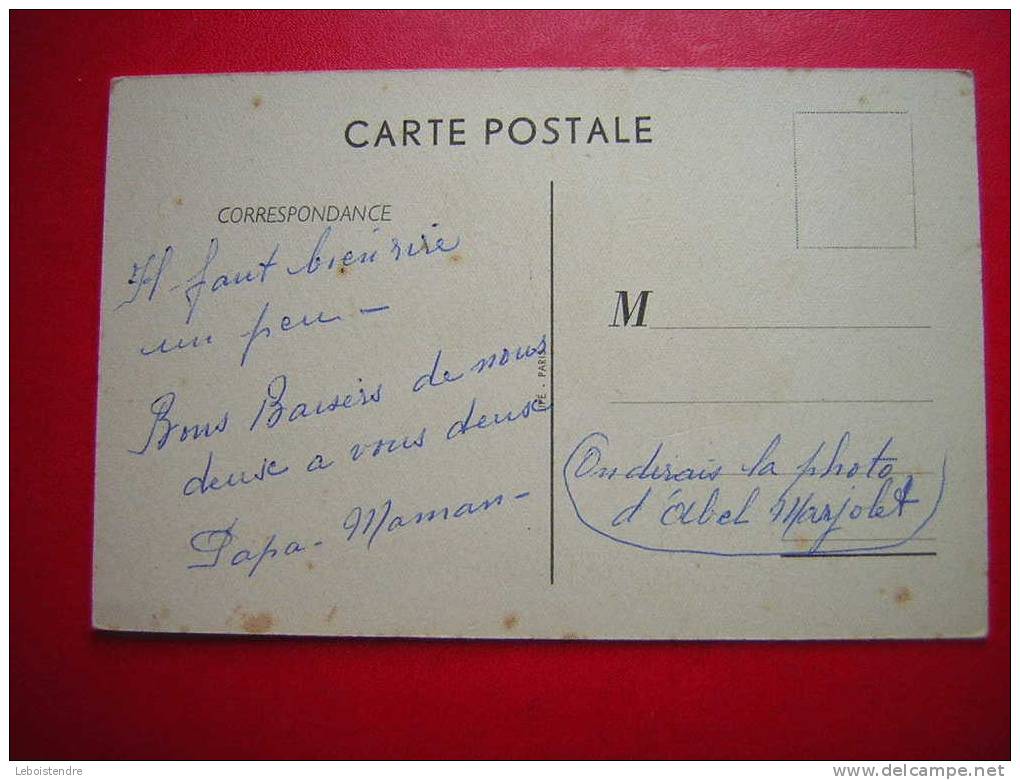 CARTE POSTALE
CORRESPONDANCE
Il faut bien rire
un peu -
Bons Baisers de nous
deux a vous deux
Papa - Maman -
PARIS
M
(On dirais la photo
d'Abel Marjolet)
Leboistendre
www.delcampe.net